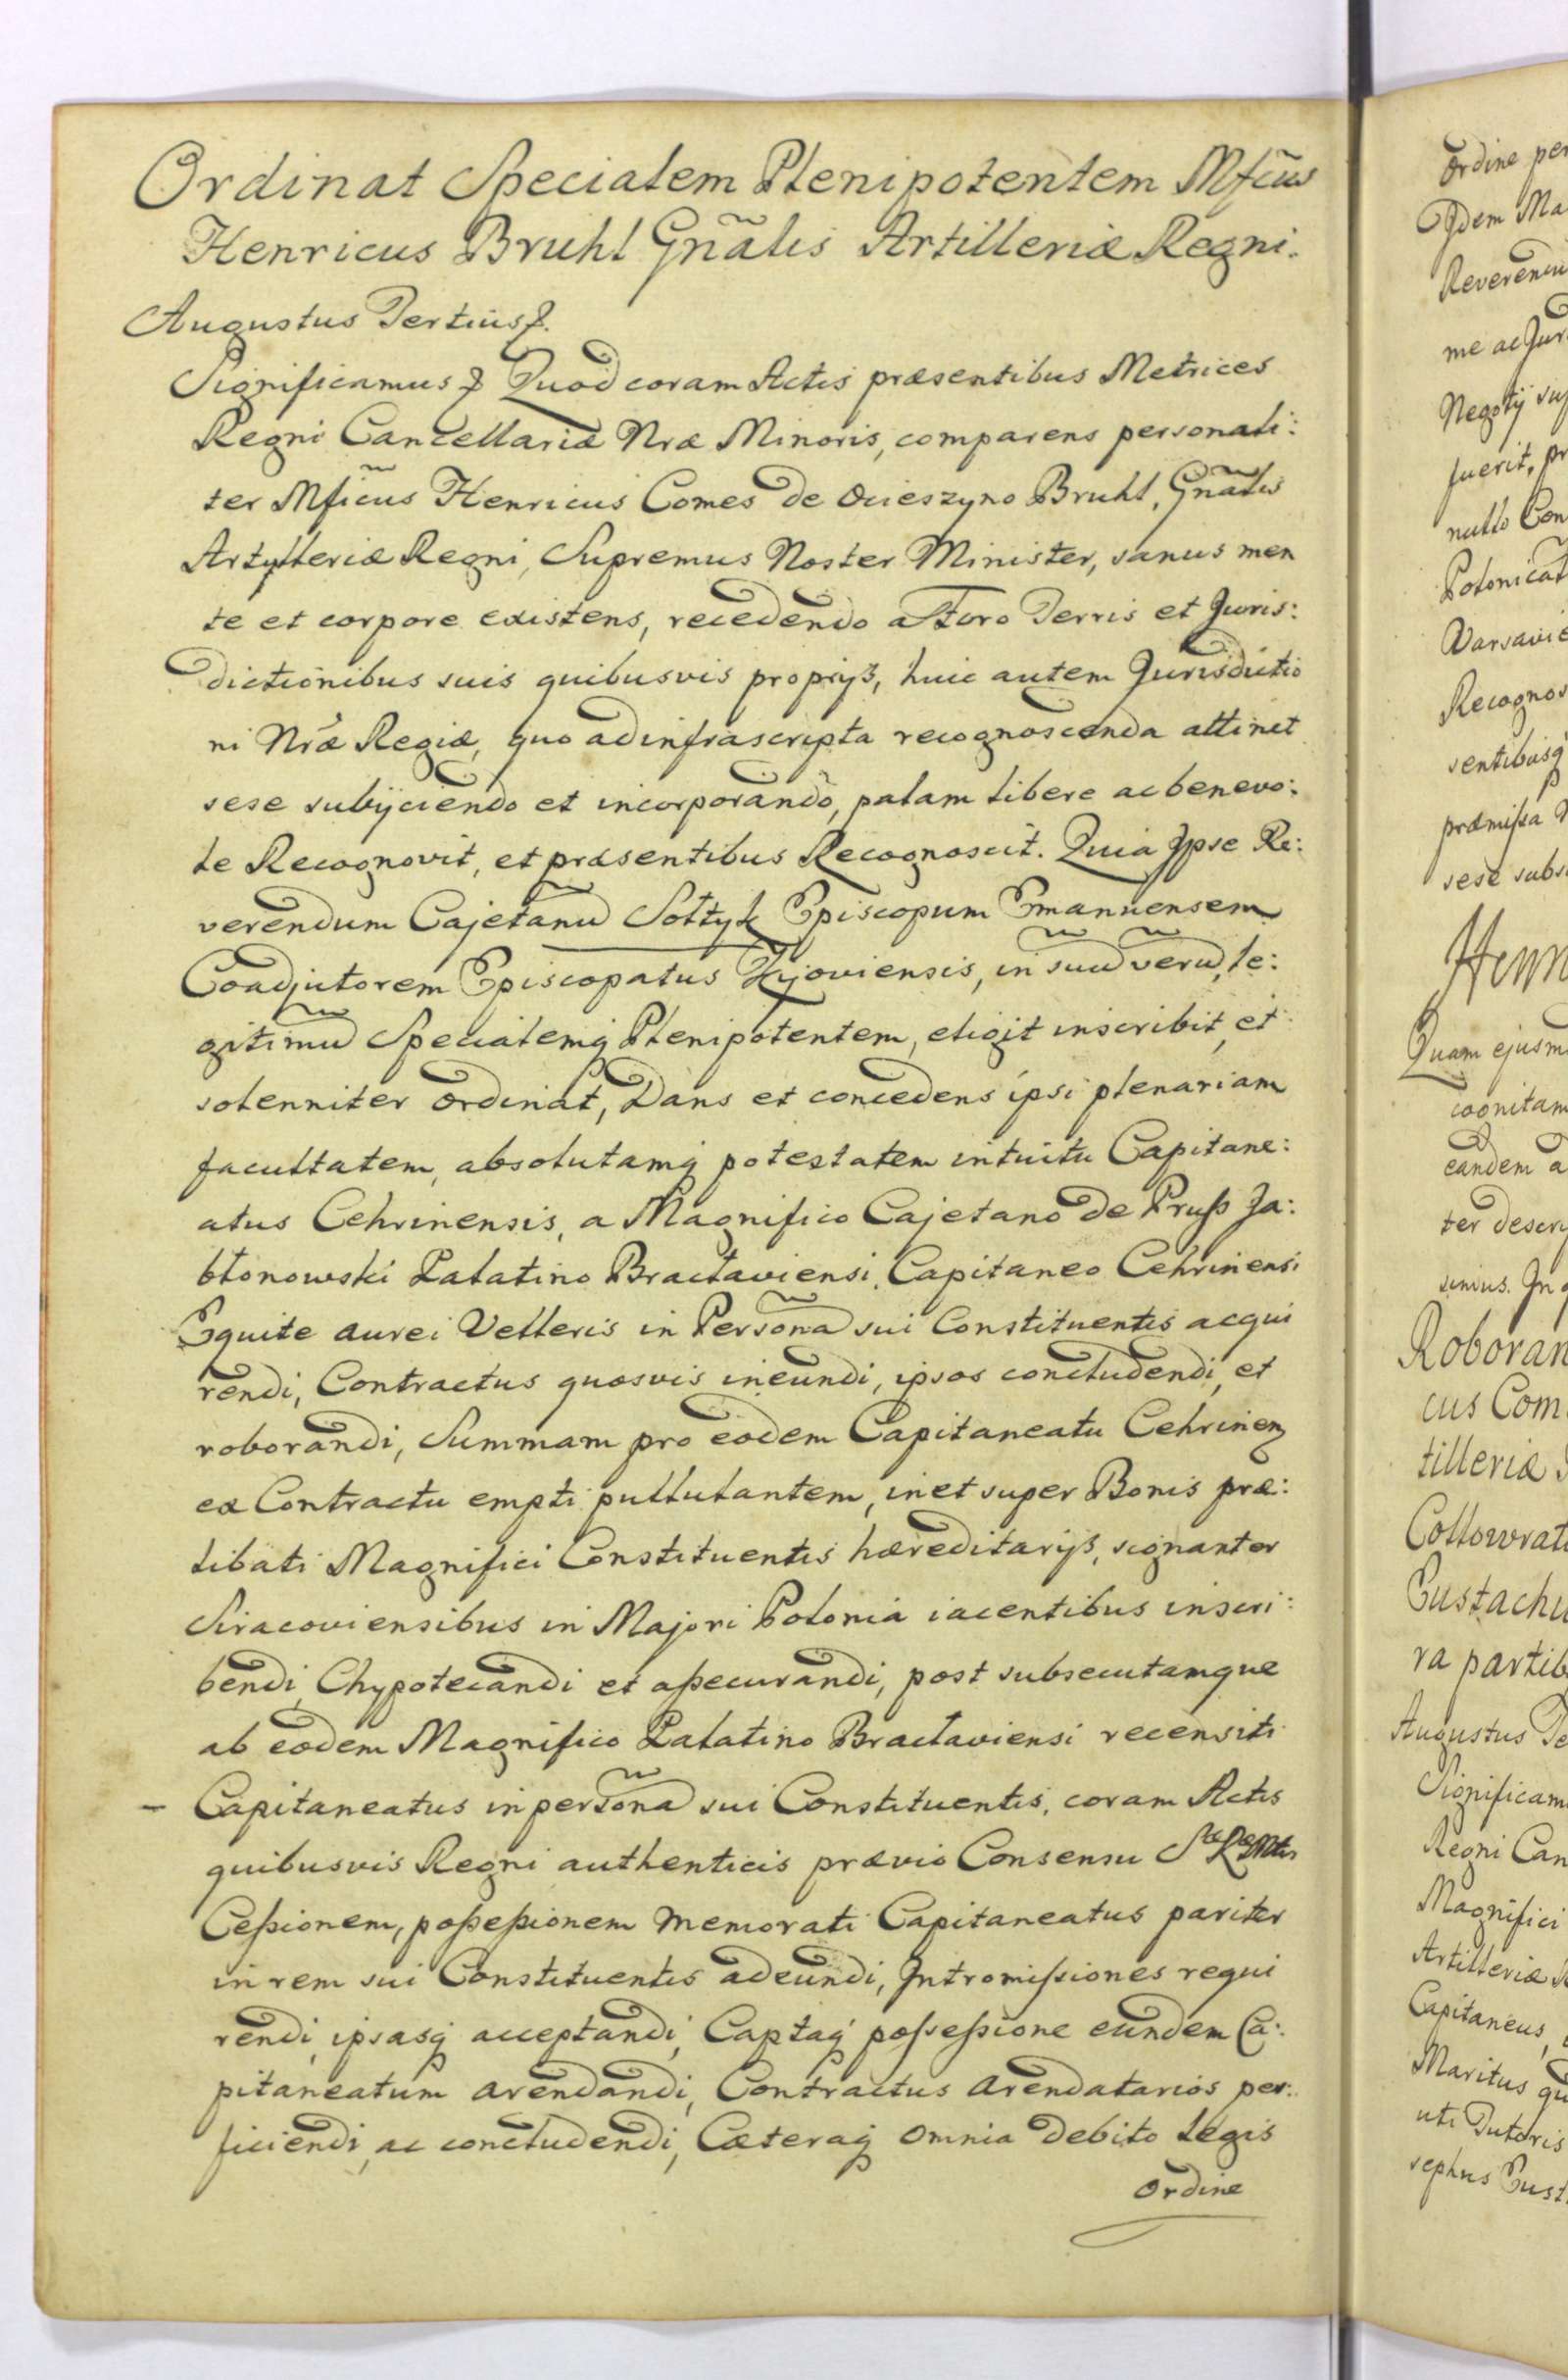 Ordinat Specialem Plenipotentem Mfcus̃
Henricus Bruhl Gnãlis Artilleriæ Regni.
Augustus Tertius
Significamus Quod coram Actis præsentibus Metrices
Regni Cancellariæ Nræ Minoris, comparens personali:
ter Mficũs Henricus Comes de Ocieszyno Bruhl, Gnãlis
Artylleriæ Regni, Supremus Noster Minister, sanus men
te et corpore existens, recedendo a Foro Terris et Juris:
dictionibus suis quibusvis proprijs, huic autem Jurisdictio
ni Nræ Regiæ, quo ad infrascripta recognoscenda attinet
sese subijciendo et incorporando, palam libere ac benevo:
le Recognovit, et præsentibus Recognoscit. Quia Ipse Re:
verendum Cajetanũ Sołtyk Episcopum Emanuensem
Coadjutorem Episcopatus Kijoviensis, in suũ verũ, le:
gitimũ Specialemq Plenipotentem, eligit inscribit, et
solenniter ordinat, Dans et concedens ipsi plenariam
facultatem, absolutamq potestatem intuitu Capitane:
atus Cehrinensis, a Magnifico Cajetano de Pruss Ja:
błonowski Palatino Bractaviensi, Capitaneo Cehrinensi
Equite aurei Velleris in Persona sui Constituentis acqui
rendi, Contractus quosvis ineundi, ipsos concludendi, et
roborandi, Summam pro eodem Capitaneatu Cehrinen
ex Contractu empti pullulantem, in et super Bonis præ:
libati Magnifici Constituentis hæreditarijs, signanter
Siracoviensibus in Majori Polonia iacentibus inscri:
bendi, Chypotecandi et assecurandi, post subsecutamque
ab eodem Magnifico Palatino Bractaviensi recensiti
– Capitaneatus in persona sui Constituentis, coram Actis
quibusvis Regni authenticis prævio Consensu Sæ Ræ Mtis
Cessionem, possessionem memorati Capitaneatus pariter
in rem sui Constituentis adeundi, Intromissiones requi
rendi, ipsasq acceptandi, Captaq possessione eundem Ca:
pitaneatum arendandi, Contractus arendatarios per:
ficiendi, ac concludendi, Cæteraq omnia debito Legis
ordine
ordine
Reveren
me ac
Negotij
fuerit,
nullo
Varsavi
Recognos
præmissa
sese subs
Quam ejusm
cognitam
eandem a
ter descri
Roboran
cus Com
tilleriæ
Collowrat
Eustachi
ra partib
Augustus Te
Significam
Regni Can
Magnifici
Artilleriæ
Capitaneus,
Maritus
uti Tutoris
sephus Eust